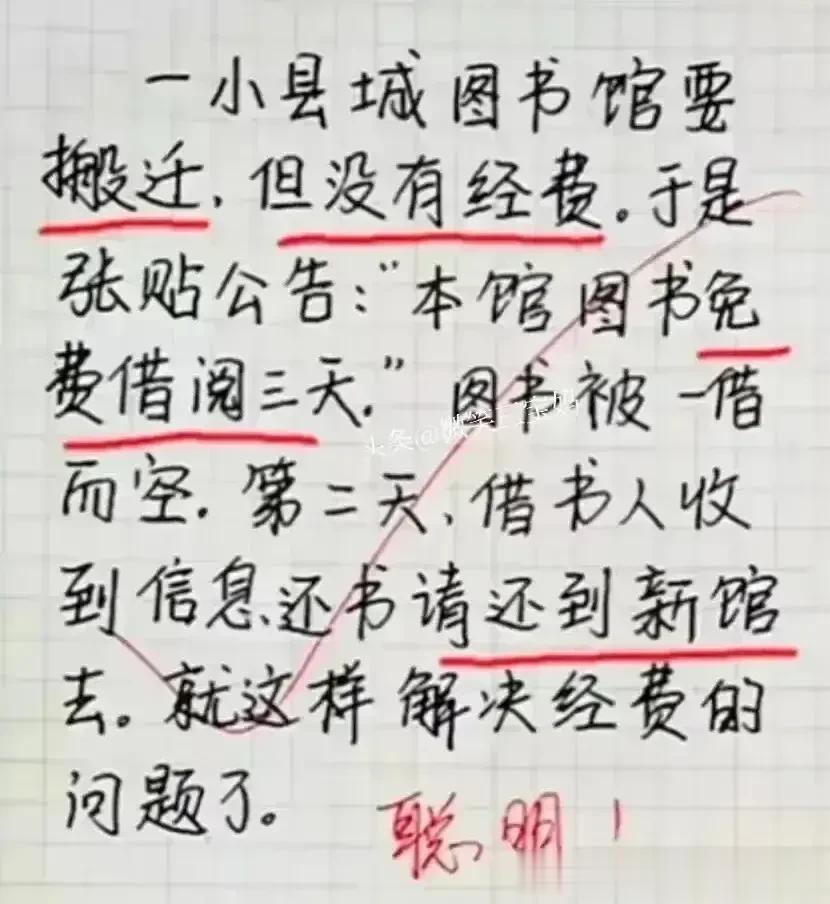 一小县城图书馆要
搬迁，但没有经费。于是
张贴公告：“本馆图书免
费借阅三天。”图书被一借
头条@微笑三宝妈
而空。第二天，借书人收
到信息还书请还到新馆
去。就这样解决经费的
问题了。
聪明！